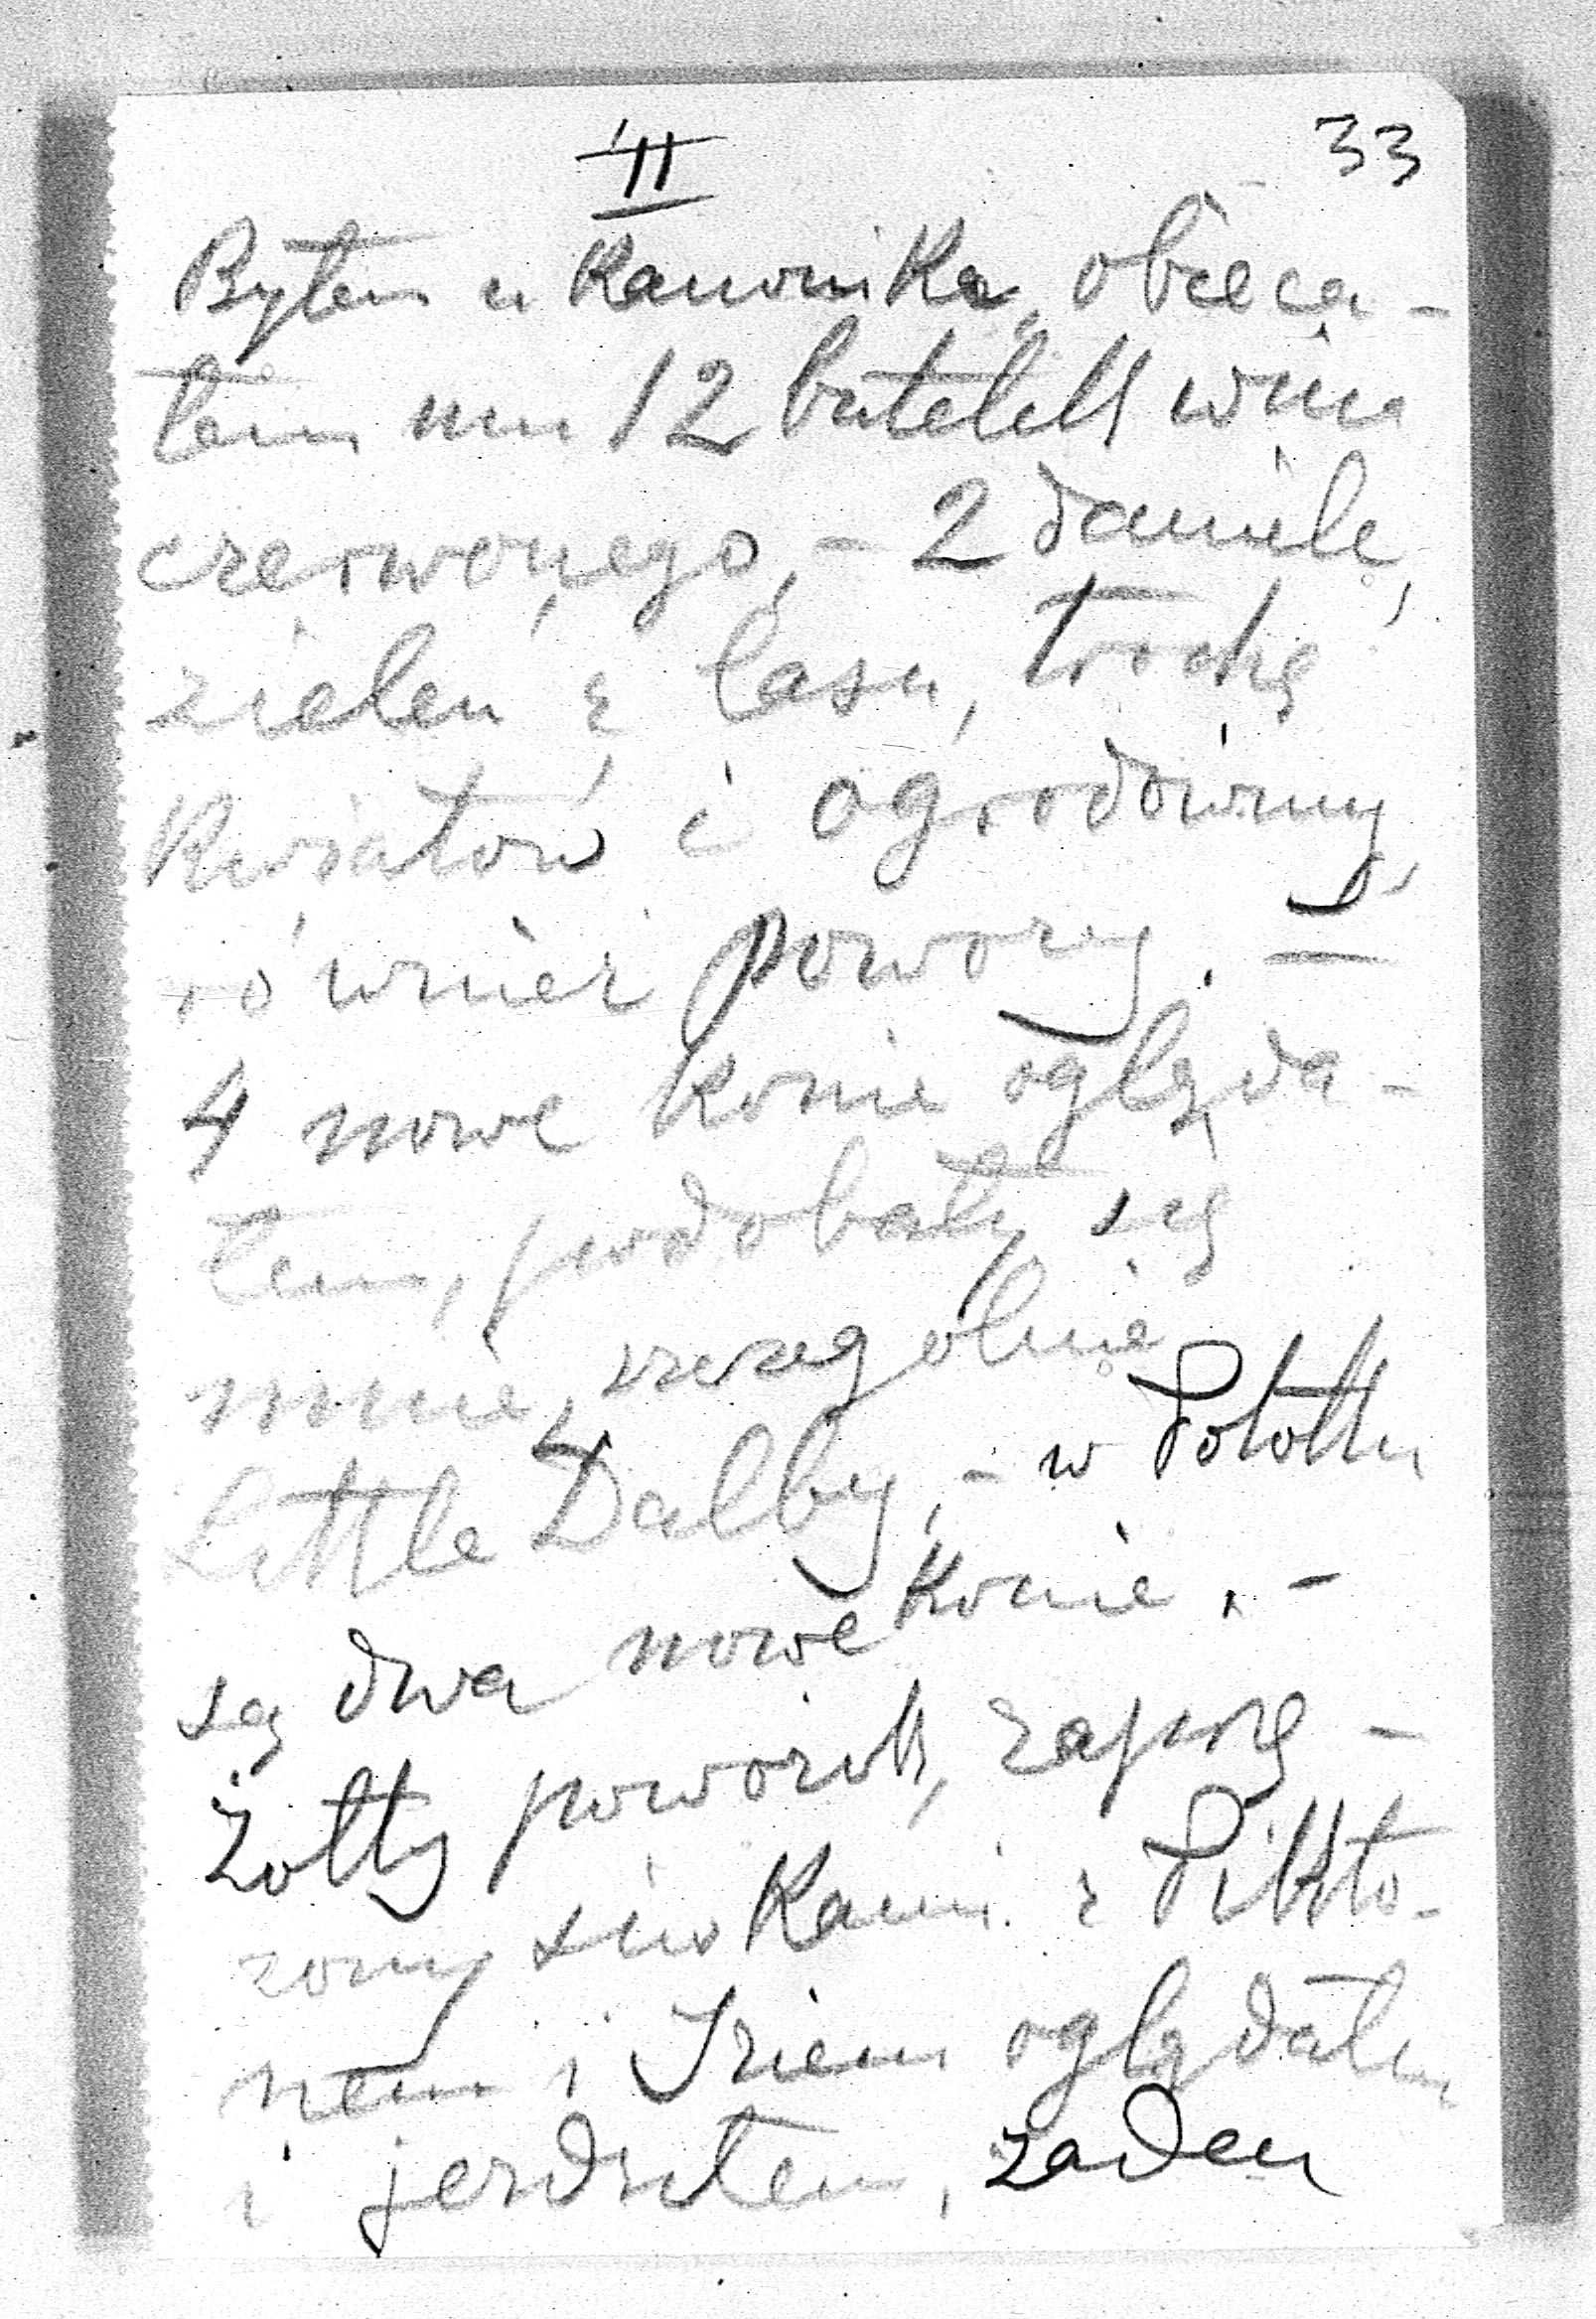 II 33
Byłem u Kanonika, obieca-
łem mu 12 butelek wina
czerwonego, - 2 daniele,
zieleń z lasu, trochę
Kwiatów i ogrodowizny,
również powozy. -
4 nowe konie ogląda-
łem, podobały się
mnie, szczególnie
Little Dalby, - w Potoku
są dwa nowe Konie. -
Żółty powozik, zaprzę-
żony siwkami z Pikto-
nem i oglądałem
i jeździłem, żaden